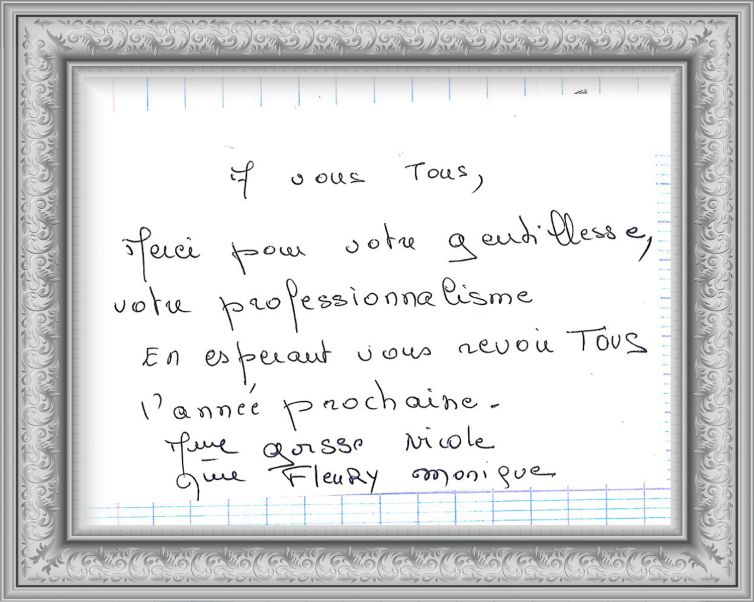 A vous Tous,
Merci pour votre gentillesse,
votre professionnalisme
En esperant vous revoir TOUS
l'année prochaine.
Mme Gorsse Nicole
Mme Fleury monique